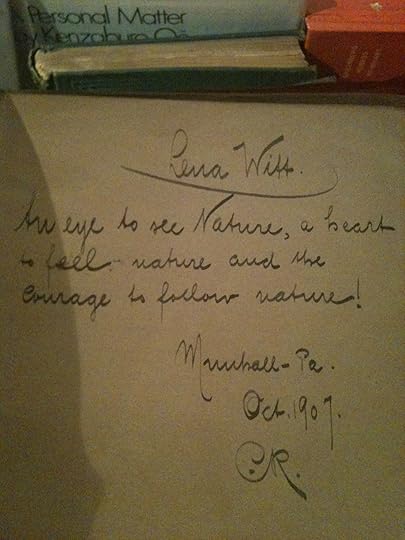 A Personal Matter
by Kenzaburo Oē
Lena Witt.
An eye to see Nature, a heart
to feel nature and the
courage to follow nature!
Munhall-Pa.
Oct. 1907.